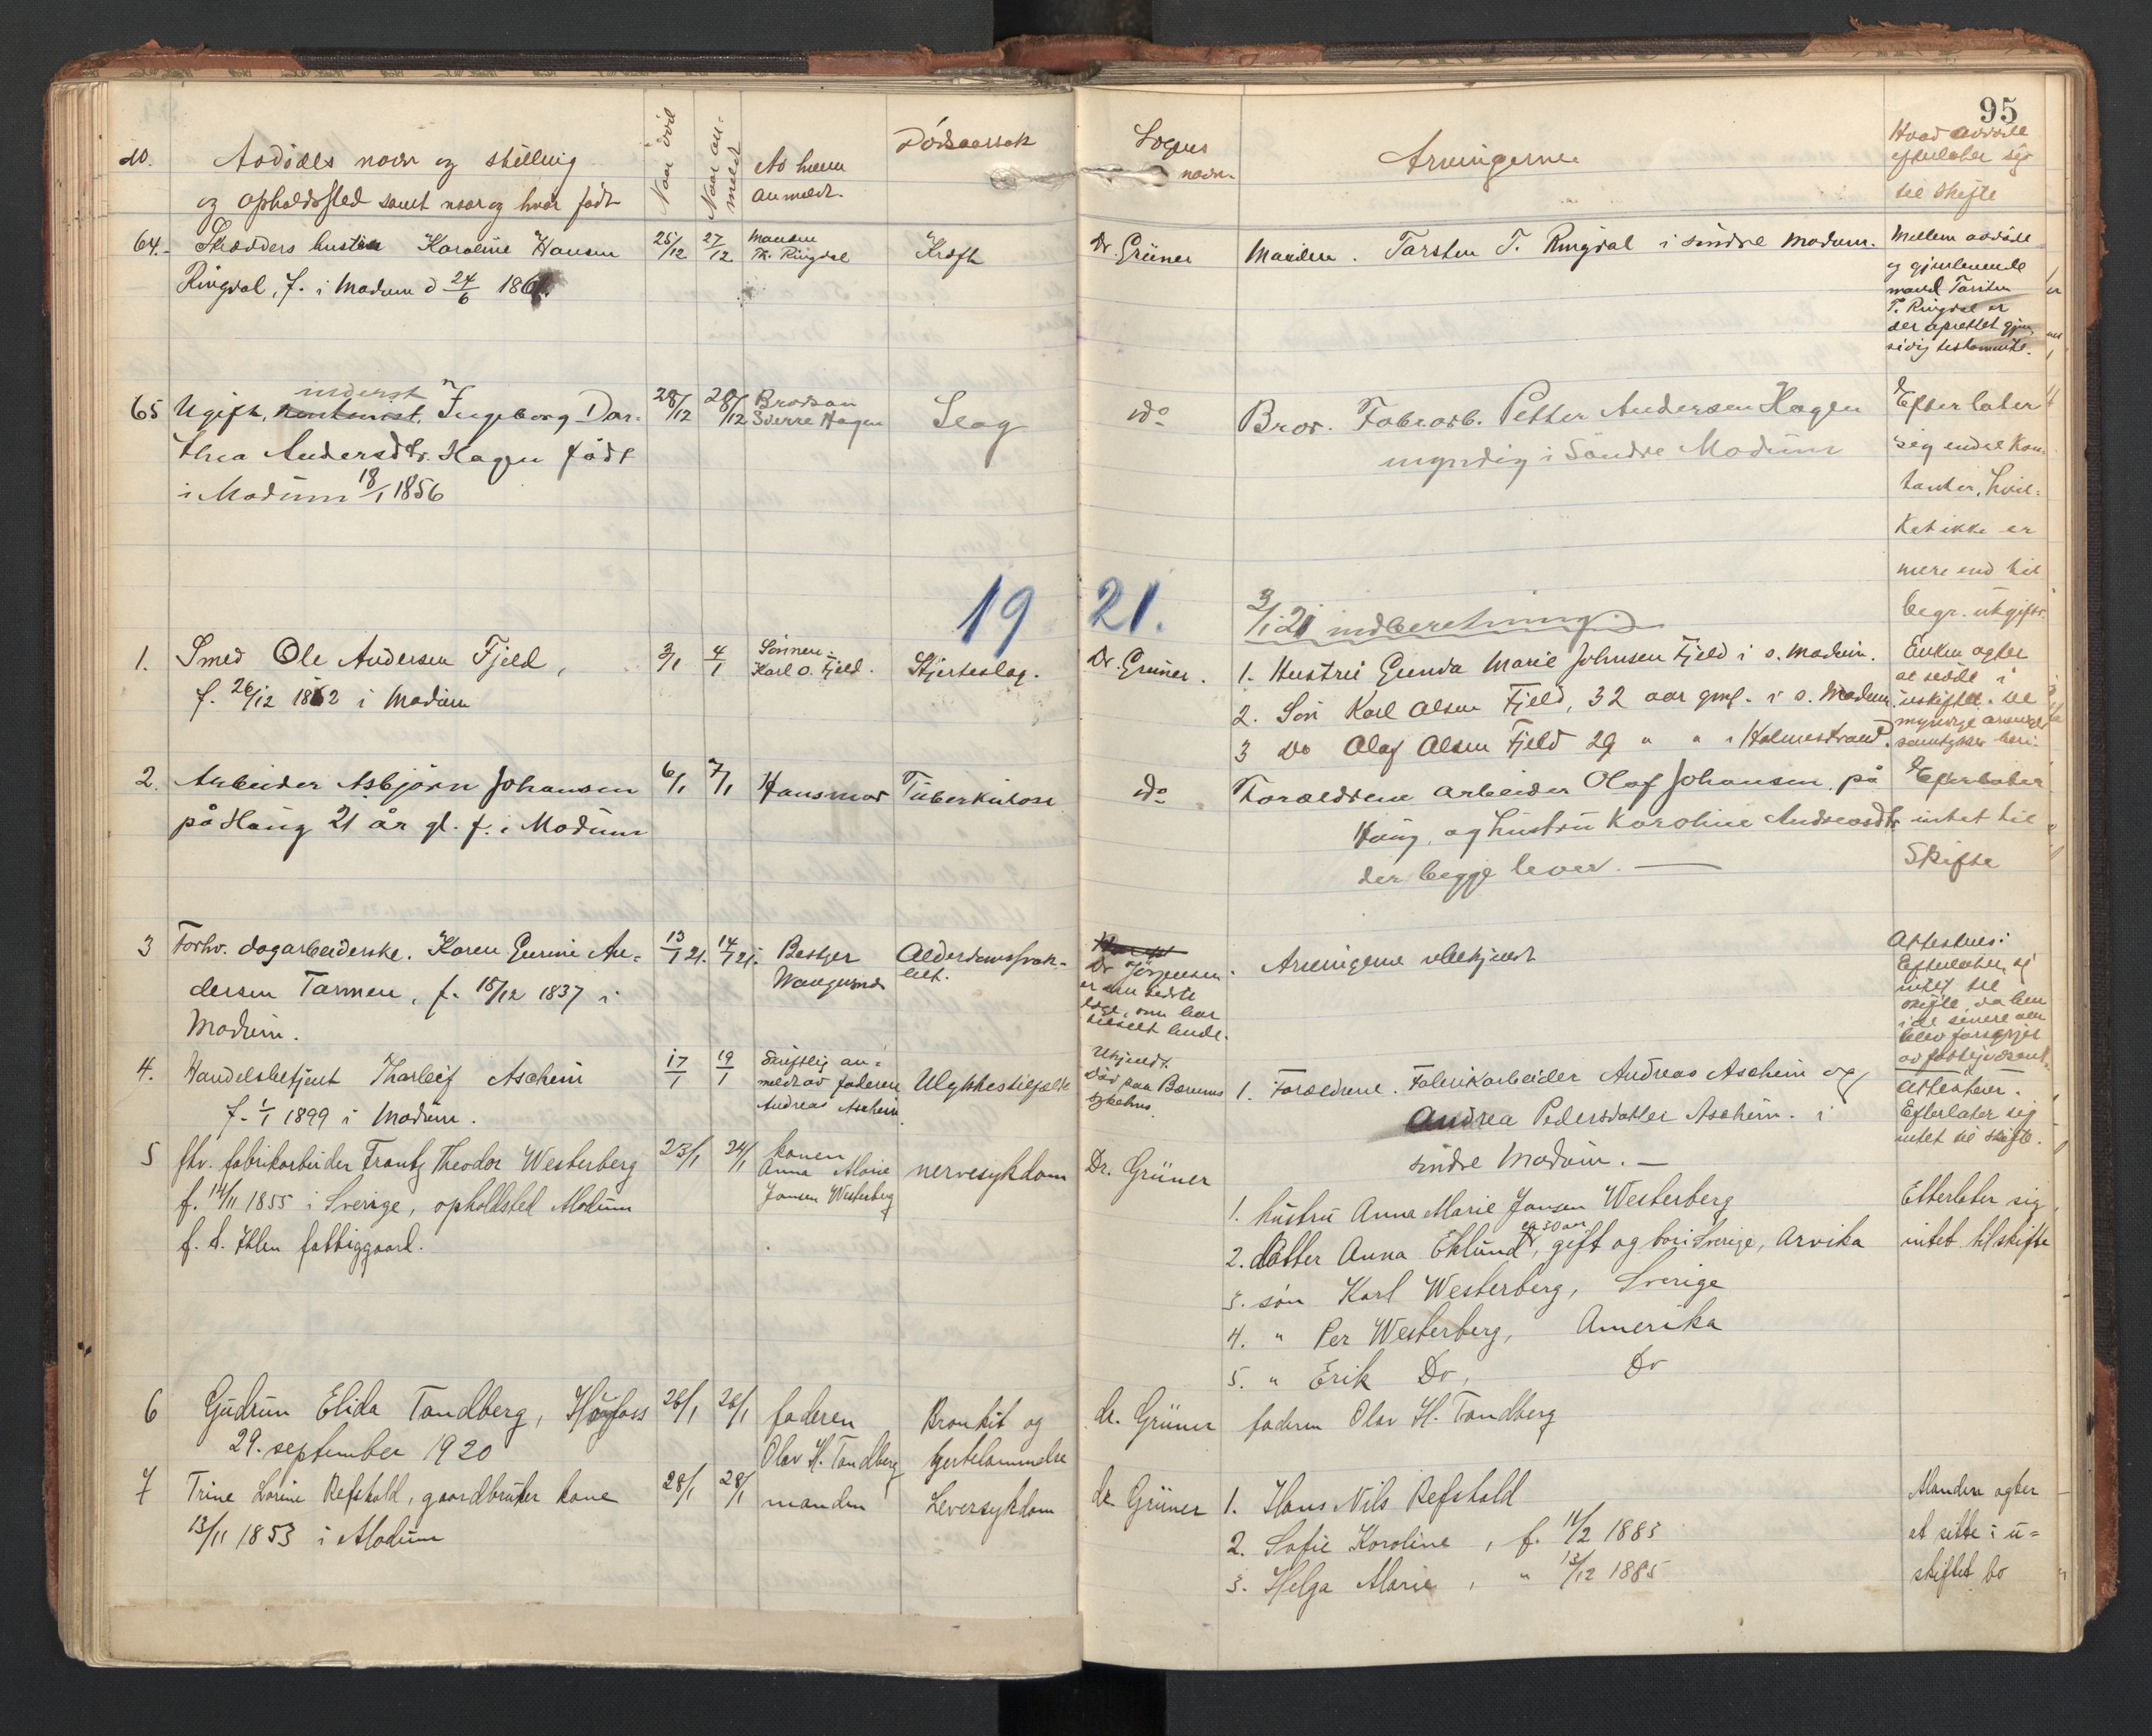 95
No.
Avdödes navn og stilling
og opholdssted samt naar og hvor födt
Naar död
Naar an-
meldt
Av hvem
anmeldt.
Dödsaarsak
Lægens
navn.
Arvingerne
Hvad avdöde
efterlater sig
til skifte
64. Skrædders hustru Karoline Hansen
Ringdal, f. i Modum d 24/6 186
25/12
27/12
Manden
T. Ringdal
Kræft
Dr. Grüner
Manden. Torsten T. Ringdal i söndre Modum.
Mellem avdöde
og gjenlevende
mand Torsten
T. Ringdal er
der oprettet gjen-
sidig testamente.
65 Ugift, inderst Ingeborg Dor-
thea Andersdtr. Hagen födt
i Modum 18/1 1856
28/12
28/12
Brodsön
Sverre Hagen
Slag
do
Bror. Fabrarb. Petter Andersen Hagen
myndig i Söndre Modum
Efterlater
sig endel kon-
tanter, hvil-
ket ikke er
mere end til
begr. utgifter
19 21.
3/1 21 indberetning.
1. Smed Ole Andersen Fjeld,
f. 26/12 1862 i Modum
3/1
4/1
Sönnen
Karl O. Fjeld.
Hjerteslag.
Dr. Grüner.
1. Hustru Gunda Marie Johnsen Fjeld i s. Modum.
2. Sön Karl Olsen Fjeld, 32 aar gml. i s. Modum
3 Do Olaf Olsen Fjeld 29 " " i Holmestrand.
Enken agter
at sidde i
uskiftet. De
myndige arvinger
samtykker heri.
2. Arbeider Asbjörn Johansen
på Haug 21 år gl. f. i Modum
6/1
7/1
Hansmor
Tuberkulose
do
Forældrene arbeider Olaf Johansen på
Haug, og hustru Karoline Andreasdtr
der begge lever.
Efterlater
intet til
Skifte
3 Forhv. dagarbeiderske. Karen Gurine An-
dersen Tormen, f. 15/12 1837 i
Modum.
13/1 21.
14/1 21.
Bestyr
Alderdomssvak-
het.
Dr Jörgensen
er den sidste
læge, som har
tilseet hende.
Arvingerne ubekjendt
Attesteres:
Efterlater sig
intet til
skifte da hun
i de senere aar
blev forsörget
av fattigvæsenet.
4. Handelsbetjent Thorleif Aschim
f. 1/1 1899 i Modum.
17/1
19/1
Skriftlig an-
meldt av faderen
Andreas Aschim
Ulykkestilfælde
Ukjendt.
Död paa Bærums
sykehus.
1. Forældrene. Fabrikarbeider Andreas Aschim og
Andrea Pedersdatter Aschim. i
söndre Modum.
Attesteres.
Efterlater sig
intet til skifte.
5 fhv. fabrikarbeider Frantz Theodor Westerberg
f. 14/11 1855 i Sverige, opholdssted Modum
f. t. Ihlen fattiggaard.
23/1
24/1
konen
Anna Marie
Jansen Westerberg
nervesykdom
Dr. Grüner
1. hustru Anna Marie Jansen Westerberg
2. datter Anna Eklund, ca 30 aar gift og bor i Sverige, Arvika
3. sön Karl Westerberg, Sverige
4. " Per Westerberg, Amerika
5. " Erik Do, Do
Etterlater sig
intet til skifte
6 Gudrun Elida Tandberg, Hönefoss
29. september 1920
26/1
26/1
faderen
Olav H. Tandberg
Bronkit og
hjertelammelse
dr. Grüner
faderen Olav H. Tandberg
7 Trine Lorine Refshold, gaardbruker kone
13/11 1853 i Modum
28/1
28/1
manden
Leversykdom
dr. Grüner
1. Hans Nils Refshold
2. Sofie Karoline, f. 11/2 1883
3. Helga Marie, " 13/12 1885
Manden agter
at sitte i u-
skiftet bo